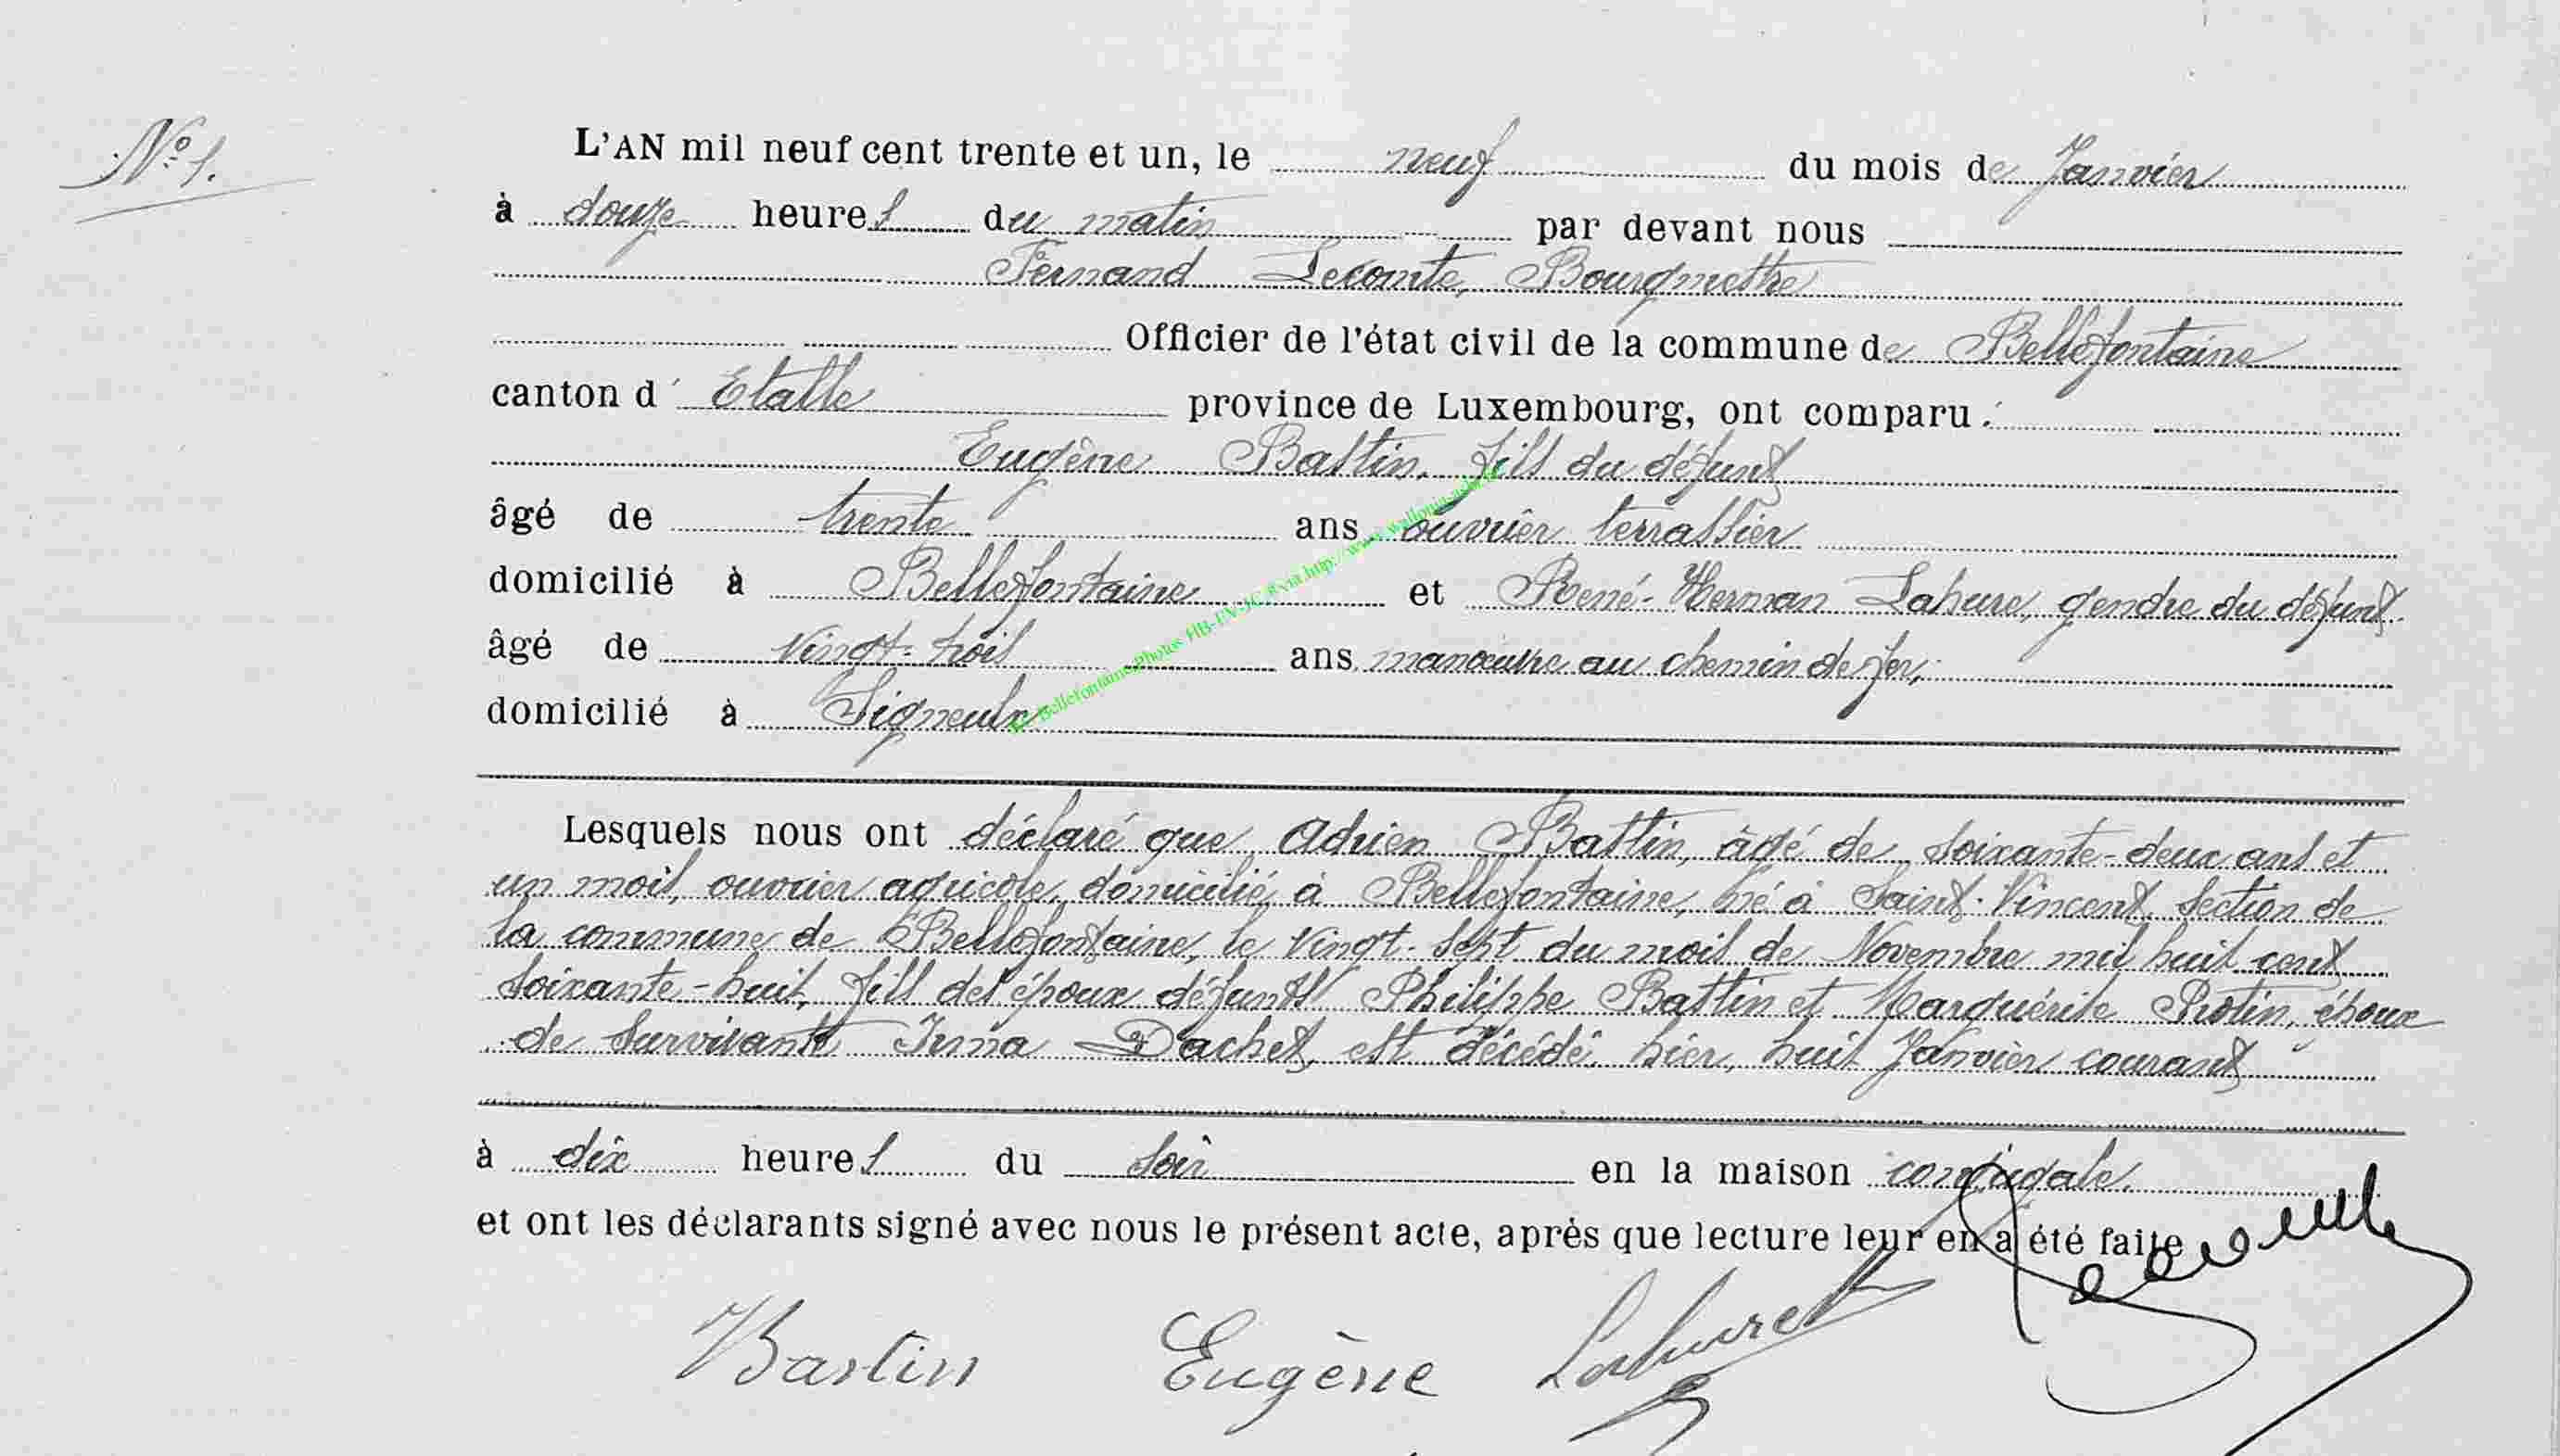 N° 1.
L'AN mil neuf cent trente et un, le neuf du mois de Janvier
à douze heures du matin par devant nous
Fernand Lecomte, Bourgmestre
Officier de l'état civil de la commune de Bellefontaine
canton d'Etalle province de Luxembourg, ont comparu :
Eugène Bastin, fils du défunt
âgé de trente ans ouvrier terrassier
domicilié à Bellefontaine et René-Herman Lahure, gendre du défunt
âgé de vingt-trois ans manœuvre au chemin de fer,
domicilié à Signeulx
Lesquels nous ont déclaré que Adrien Bastin, âgé de soixante-deux ans et
un mois, ouvrier agricole, domicilié à Bellefontaine, né à Saint-Vincent, section de
la commune de Bellefontaine, le vingt-sept du mois de Novembre mil huit cent
soixante-huit, fils des époux défunts Philippe Bastin et Marguérite Protin, époux
de survivante Irma Dachet, est décédé, hier, huit Janvier courant
à dix heures du soir en la maison conjugale.
et ont les déclarants signé avec nous le présent acte, après que lecture leur en a été faite
Bastin Eugène Lahure